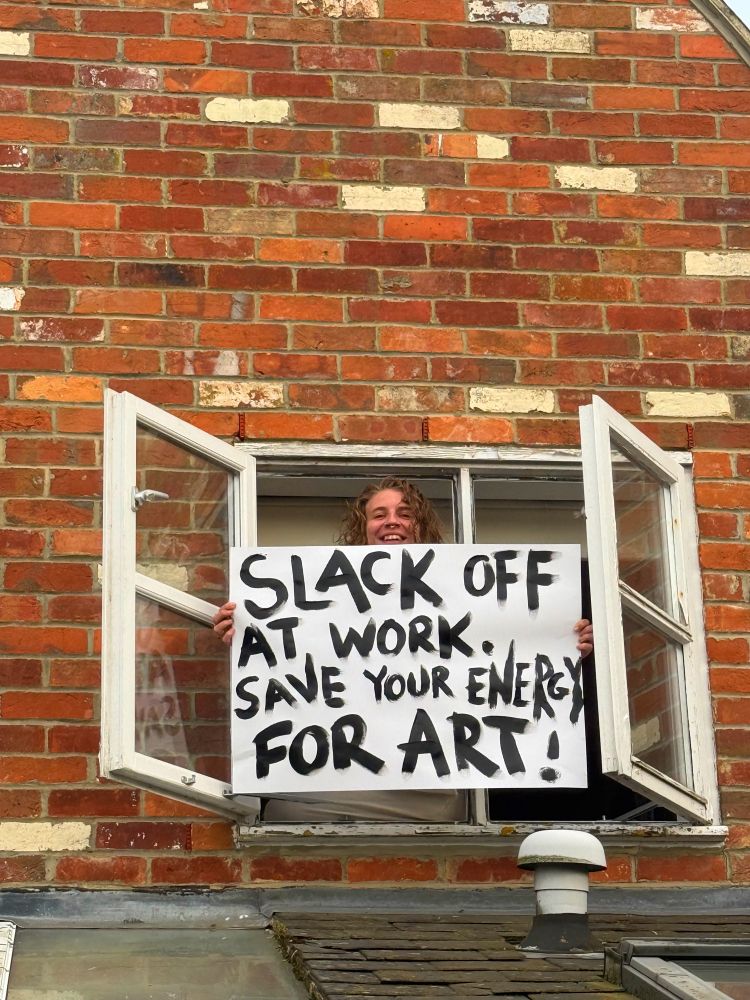 SLACK OFF
AT WORK.
SAVE YOUR ENERGY
FOR ART!